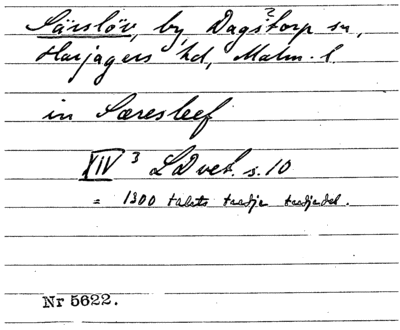 Särslöv, by, Dagstorp ? sn,
Harjagers hd, Malm. l.
in Særesleef
XIV 3 LDvet. s. 10
= 1300 talets tredje tredjedel.
Nr 5622.